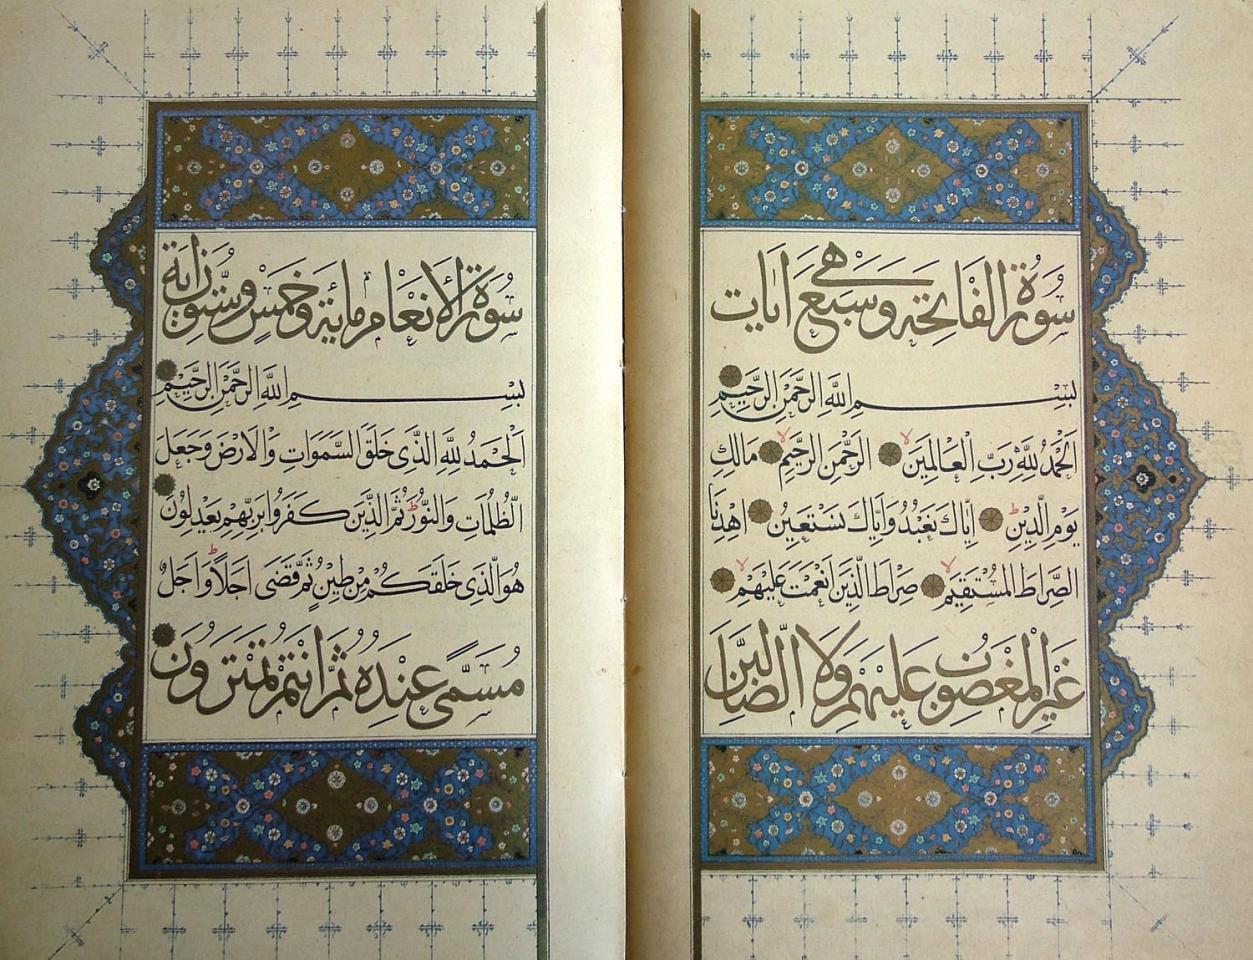 سُورَةُ الْفَاتِحَةِ وَهِيَ سَبْعُ اٰيَات
بِسْمِ اللّٰهِ الرَّحْمٰنِ الرَّحِيمِ
اَلْحَمْدُ لِلّٰهِ رَبِّ الْعَالَمِينَ الرَّحْمٰنِ الرَّحِيمِ مَالِكِ
يَوْمِ الدِّينِ اِيَّاكَ نَعْبُدُ وَاِيَّاكَ نَسْتَعِينُ اِهْدِنَا
الصِّرَاطَ الْمُسْتَقِيمَ صِرَاطَ الَّذِينَ اَنْعَمْتَ عَلَيْهِمْ
غَيْرِ الْمَغْضُوبِ عَلَيْهِمْ وَلَا الضَّالِّينَ
سُورَةُ الْاَنْعَامِ مِائَةٌ وَخَمْسٌ وَسِتُّونَ اٰيَة
بِسْمِ اللّٰهِ الرَّحْمٰنِ الرَّحِيمِ
اَلْحَمْدُ لِلّٰهِ الَّذِي خَلَقَ السَّمٰوَاتِ وَالْاَرْضَ وَجَعَلَ
الظُّلُمَاتِ وَالنُّورَ ثُمَّ الَّذِينَ كَفَرُوا بِرَبِّهِمْ يَعْدِلُونَ
هُوَ الَّذِي خَلَقَكُمْ مِنْ طِينٍ ثُمَّ قَضٰى اَجَلًا وَاَجَلٌ
مُسَمًّى عِنْدَهُ ثُمَّ اَنْتُمْ تَمْتَرُونَ